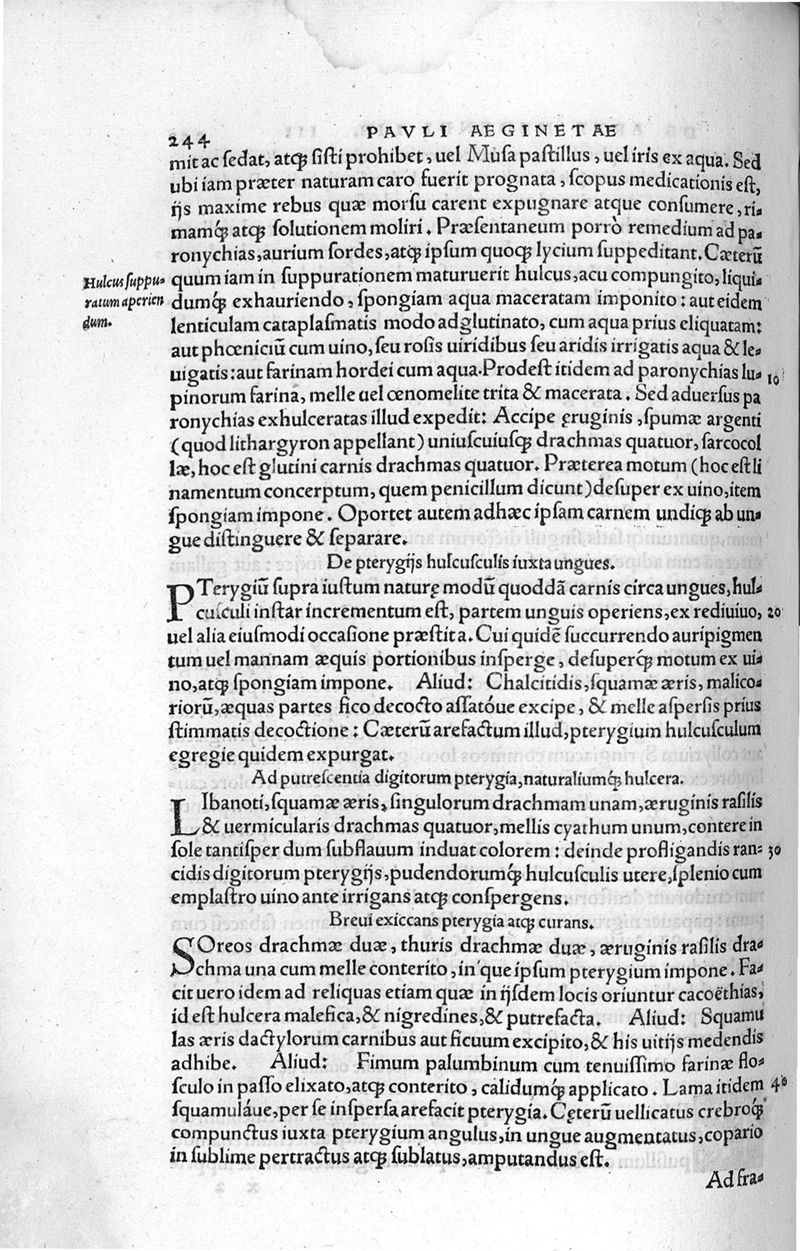 244 PAVLI AEGINETAE
mit ac sedat, atq́; sisti prohibet, uel Musa pastillus, uel iris ex aqua. Sed
ubi iam præter naturam caro fuerit prognata, scopus medicationis est,
ijs maxime rebus quæ morsu carent expugnare atque consumere, ri-
mamq́; atq́; solutionem moliri. Præsentaneum porrò remedium ad pa-
ronychias, aurium sordes, atq́; ipsum quoq́; lycium suppeditant. Cæterũ
Hulcus suppu-
ratum aperien
dum.
quum iam in suppurationem maturuerit hulcus, acu compungito, liqui-
dumq́; exhauriendo, spongiam aqua maceratam imponito: aut eidem
lenticulam cataplasmatis modo adglutinato, cum aqua prius eliquatam:
aut phœniciũ cum uino, seu rosis uiridibus seu aridis irrigatis aqua & le-
uigatis: aut farinam hordei cum aqua. Prodest itidem ad paronychias lu- 10
pinorum farina, melle uel œnomelite trita & macerata. Sed aduersus pa
ronychias exhulceratas illud expedit: Accipe ęruginis, spumæ argenti
(quod lithargyron appellant) uniuscuiusq́; drachmas quatuor, sarcocol
læ, hoc est glutini carnis drachmas quatuor. Præterea motum (hoc est li
namentum concerptum, quem penicillum dicunt) desuper ex uino, item
spongiam impone. Oportet autem adhæc ipsam carnem undiq́; ab un-
gue distinguere & separare.
De pterygijs hulcusculis iuxta ungues.
PTerygiũ supra iustum naturę modũ quoddã carnis circa ungues, hul-
cusculi instar incrementum est, partem unguis operiens, ex rediuiuo, 20
uel alia eiusmodi occasione præstita. Cui quidẽ succurrendo auripigmen
tum uel mannam æquis portionibus insperge, desuperq́; motum ex ui-
no, atq́; spongiam impone. Aliud: Chalcitidis, squamæ æris, malico-
riorũ, æquas partes fico decocto assatóue excipe, & melle aspersis prius
stimmatis decoctione: Cæterũ arefactum illud, pterygium hulcusculum
egregie quidem expurgat.
Ad putrescentia digitorum pterygia, naturaliumq́; hulcera.
LIbanoti, squamæ æris, singulorum drachmam unam, æruginis rasilis
& uermicularis drachmas quatuor, mellis cyathum unum, contere in
sole tantisper dum subflauum induat colorem: deinde profligandis ran- 30
cidis digitorum pterygijs, pudendorumq́; hulcusculis utere, splenio cum
emplastro uino ante irrigans atq́; conspergens.
Breui exiccans pterygia atq́; curans.
SOreos drachmæ duæ, thuris drachmæ duæ, æruginis rasilis dra-
chma una cum melle conterito, in'que ipsum pterygium impone. Fa-
cit uero idem ad reliquas etiam quæ in ijsdem locis oriuntur cacoëthias,
id est hulcera malefica, & nigredines, & putrefacta. Aliud: Squamu
las æris dactylorum carnibus aut ficuum excipito, & his uitijs medendis
adhibe. Aliud: Fimum palumbinum cum tenuissimo farinæ flo-
sculo in passo elixato, atq́; conterito, calidumq́; applicato. Lama itidem 40
squamuláue, per se inspersa arefacit pterygia. Cęterũ uellicatus crebroq́;
compunctus iuxta pterygium angulus, in ungue augmentatus, copario
in sublime pertractus atq́; sublatus, amputandus est.
Ad fra-